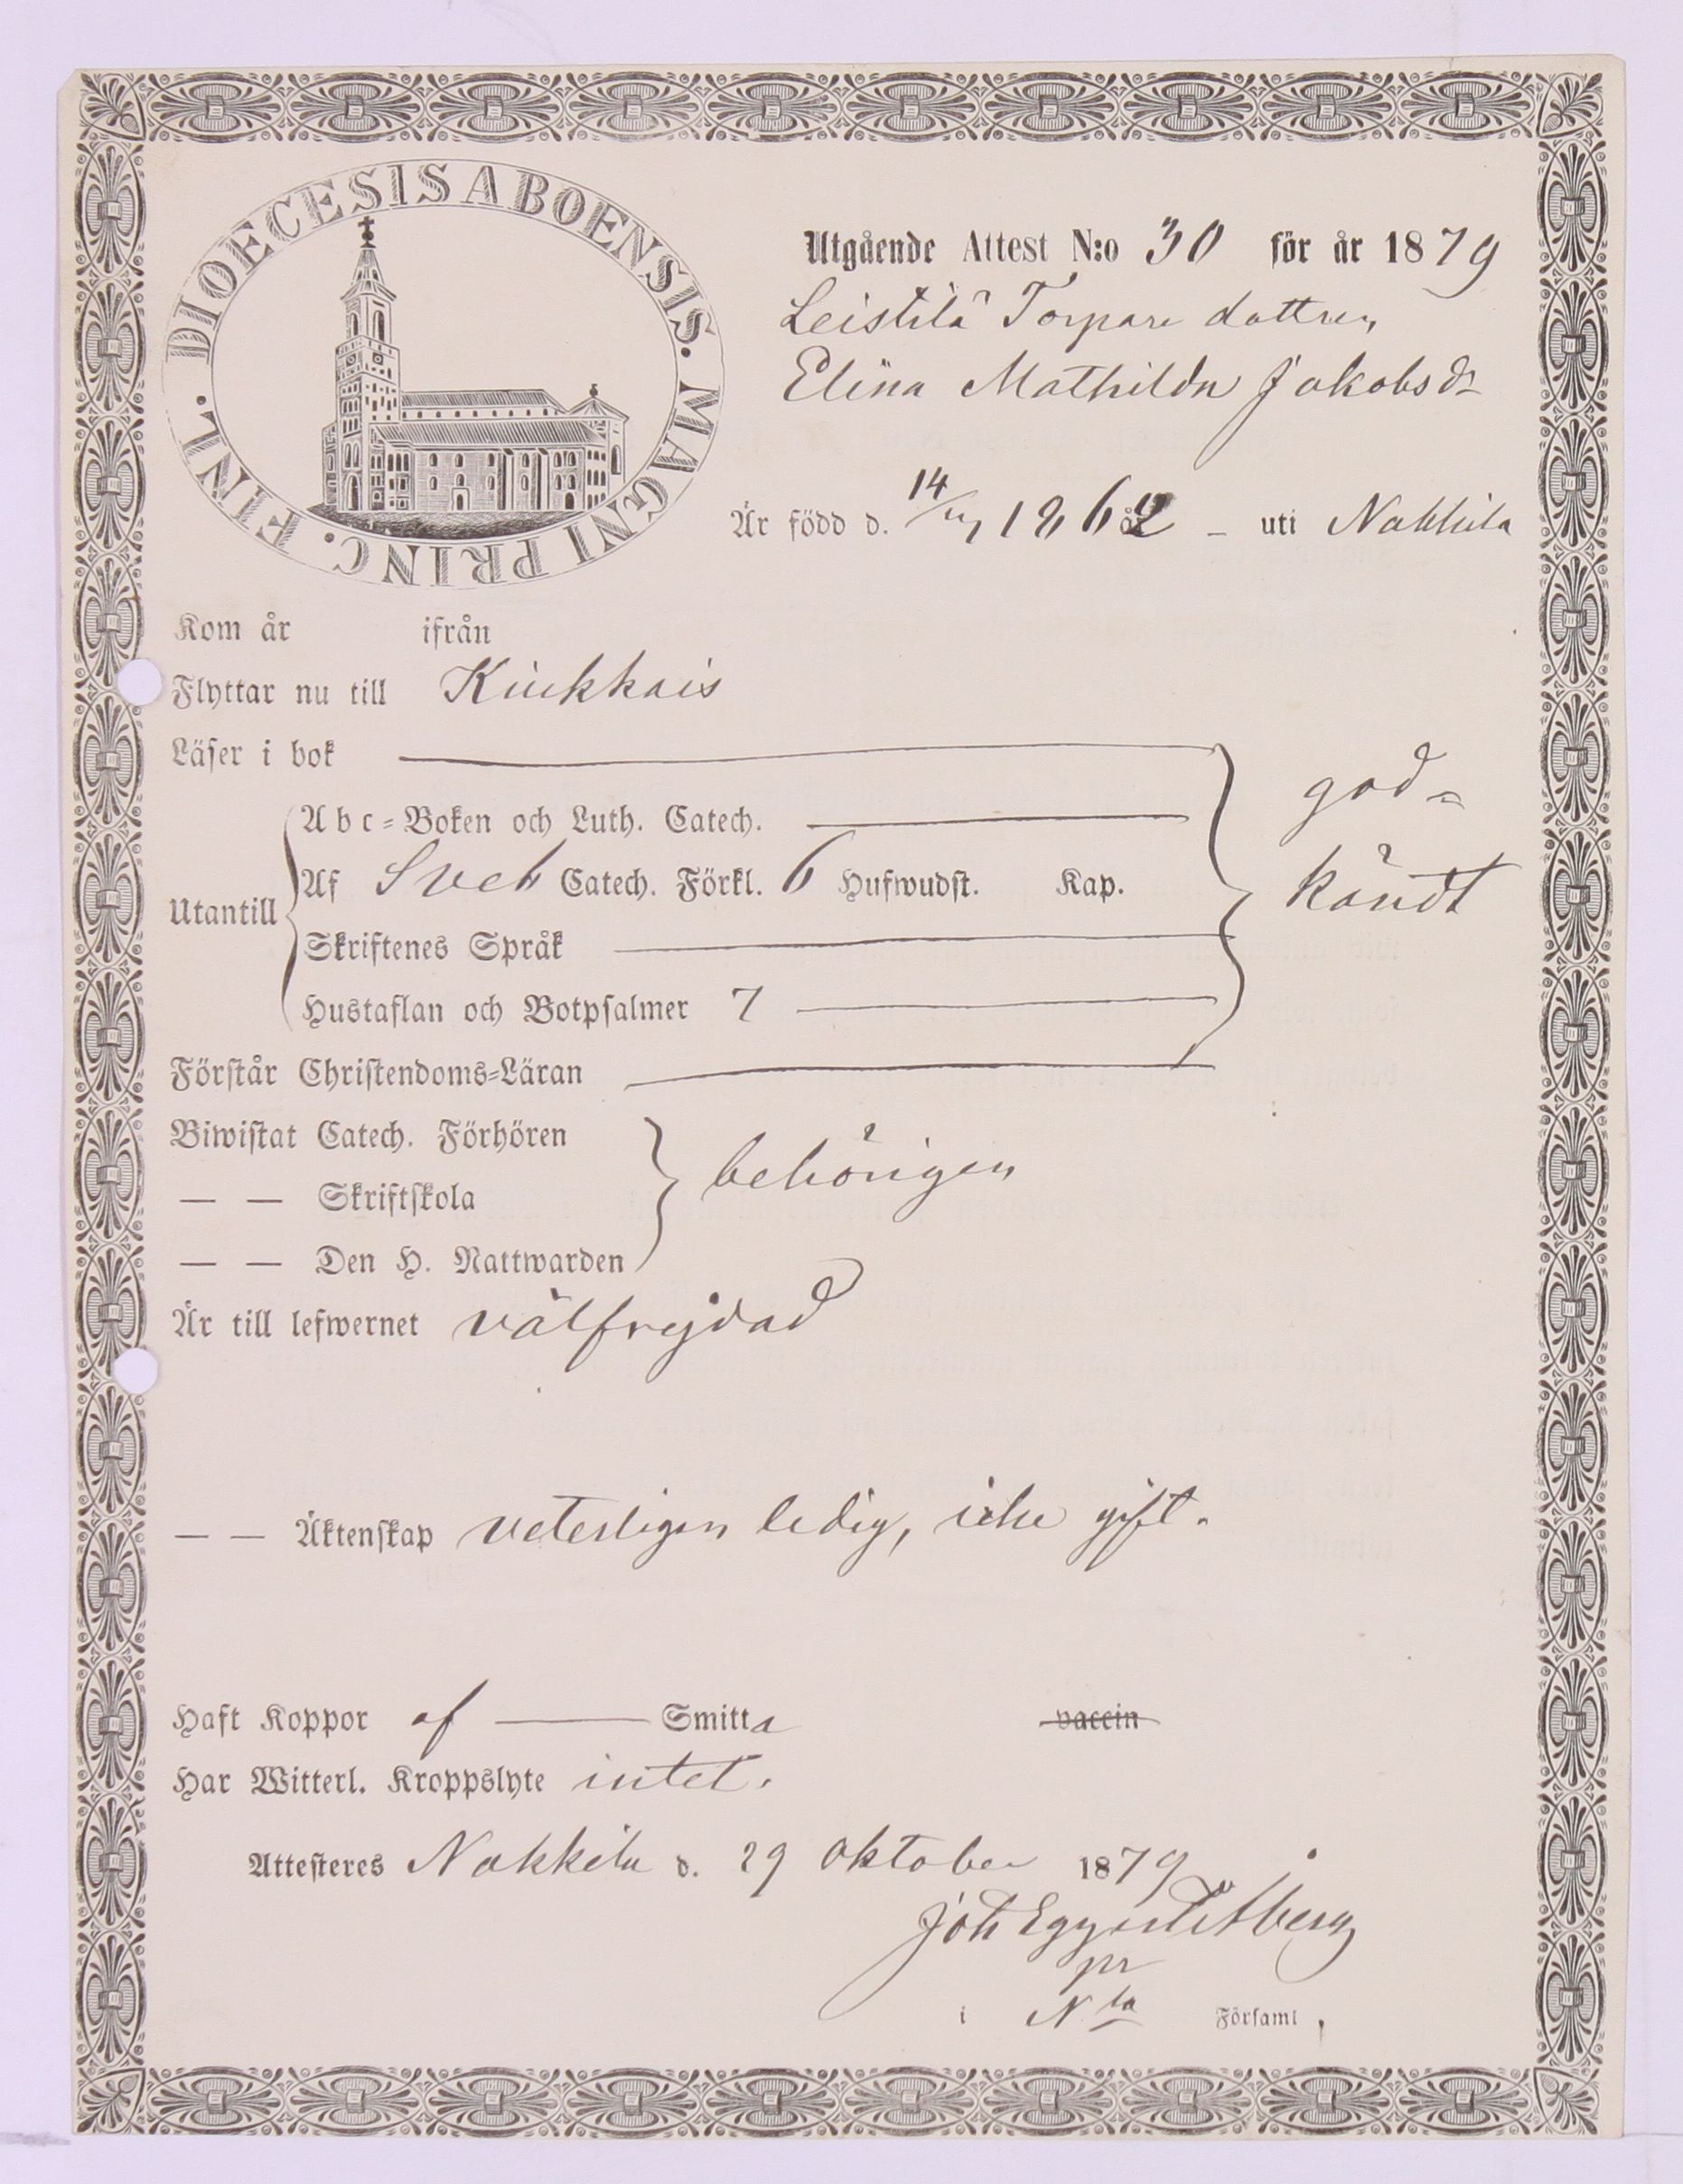 DIOECESIS ABOENSIS. MAGNI PRINC. FINL.
Utgående Attest N:o 30 för år 1879
Leistilä Torpare dottren
Elina Mathilda Jakobsdr
Är född d. 14/ 1862 – uti Nakkila
Kom år ifrån
Flyttar nu till Kiukkais
Läser i bok
Abc=Boken och Luth. Catech.
god=
Utantill
Af Sveb Catech. Förkl. 6 Hufwudst. Kap.
kändt
Skriftenes Språk
Hustaflan och Botpsalmer 7
Förstår Christendoms=Läran
Biwistat Catech. Förhören
behörigen
— — Skriftskola
— — Den H. Nattwarden
Är till lefwernet välfrejdad
— — Äktenskap veterligen ledig, icke gift.
Haft Koppor af — Smitta vaccin
Har Witterl. Kroppslyte intet.
Attesteres Nakkila d. 29 Oktober 1879
Joh
pr
i Nla Församl.